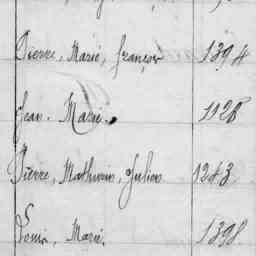 Pierre, Marie, françois 1394
Jean. Marie. 1128
Pierre, Mathurin, Julien 1243
Louis, Marie. 1398